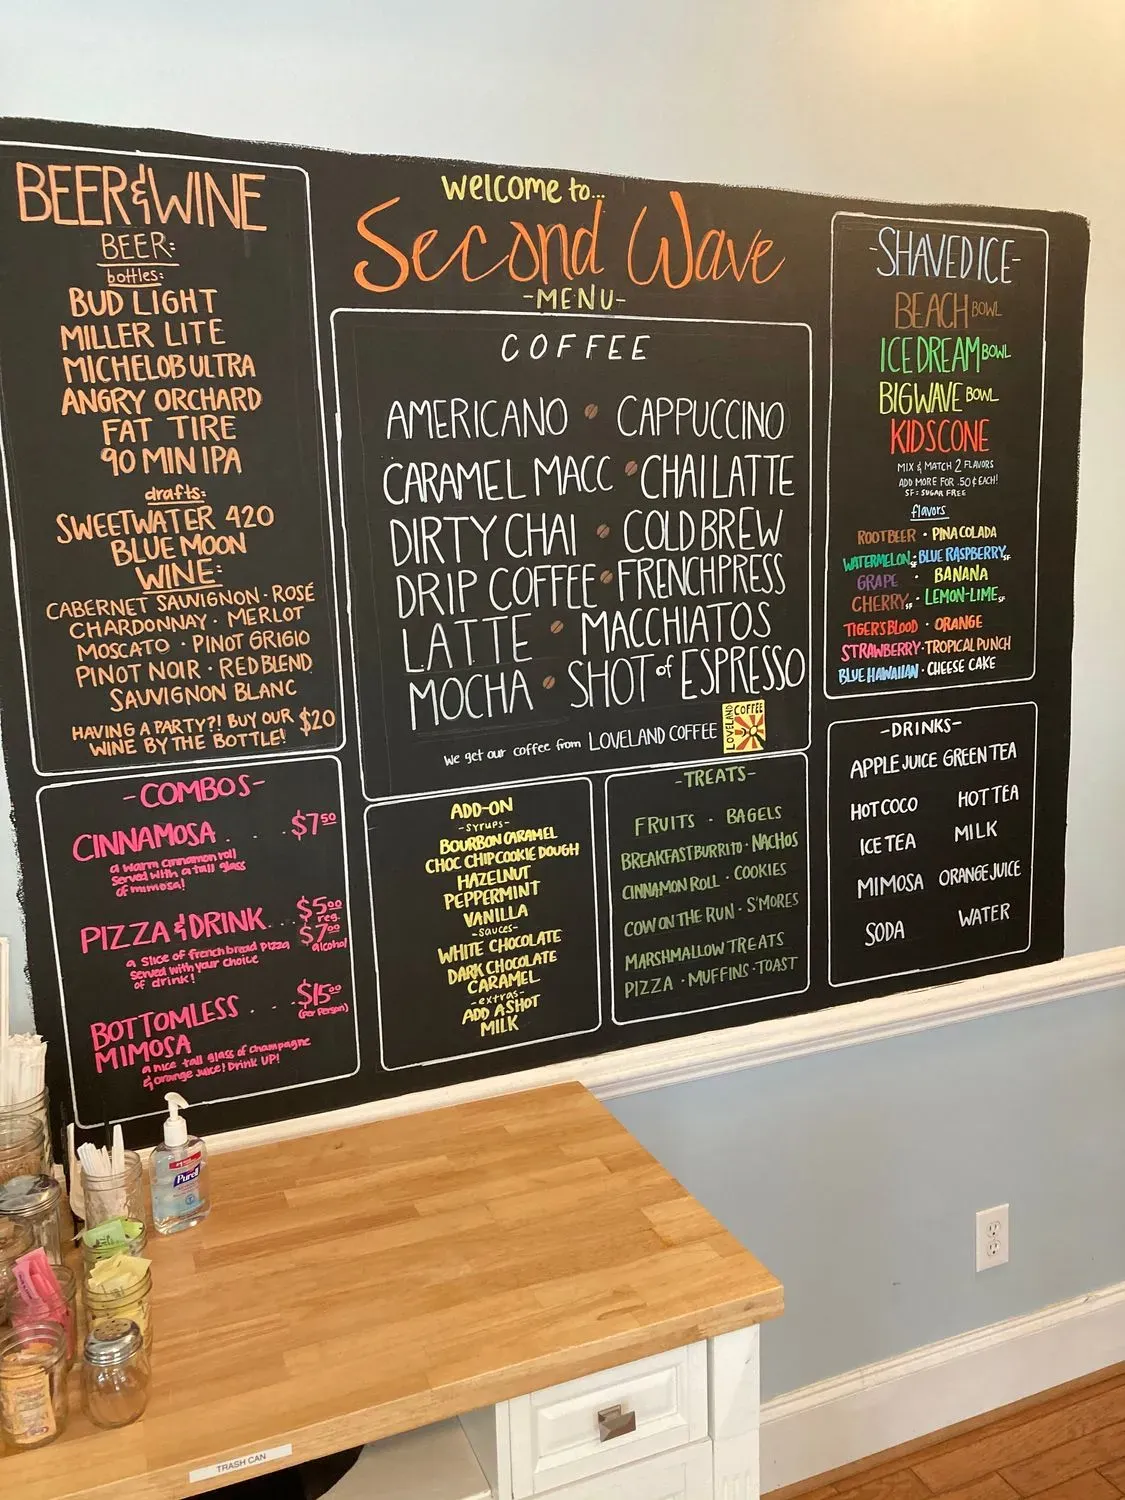 BEER & WINE
BEER:
bottles:
BUD LIGHT
MILLER LITE
MICHELOB ULTRA
ANGRY ORCHARD
FAT TIRE
90 MIN IPA
drafts:
SWEETWATER 420
BLUE MOON
WINE:
CABERNET SAUVIGNON · ROSÉ
CHARDONNAY · MERLOT
MOSCATO · PINOT GRIGIO
PINOT NOIR · RED BLEND
SAUVIGNON BLANC
HAVING A PARTY?! BUY OUR $20
WINE BY THE BOTTLE!
-COMBOS-
CINNAMOSA . . . $7.50
a warm cinnamon roll
served with a tall glass
of mimosa!
PIZZA & DRINK . . . $5.00
reg.
$7.00
alcohol
a slice of french bread pizza
served with your choice
of drink!
BOTTOMLESS . . . $15.00
(per person)
MIMOSA
a nice tall glass of champagne
& orange juice! Drink UP!
welcome to...
Second Wave
-MENU-
COFFEE
AMERICANO CAPPUCCINO
CARAMEL MACC CHAI LATTE
DIRTY CHAI COLD BREW
DRIP COFFEE FRENCH PRESS
LATTE MACCHIATOS
MOCHA SHOT of ESPRESSO
We get our coffee from LOVELAND COFFEE
LOVELAND COFFEE
ADD-ON
-syrups-
BOURBON CARAMEL
CHOC CHIP COOKIE DOUGH
HAZELNUT
PEPPERMINT
VANILLA
-sauces-
WHITE CHOCOLATE
DARK CHOCOLATE
CARAMEL
-extras-
ADD A SHOT
MILK
-TREATS-
FRUITS · BAGELS
BREAKFAST BURRITO · NACHOS
CINNAMON ROLL · COOKIES
COW ON THE RUN · S'MORES
MARSHMALLOW TREATS
PIZZA · MUFFINS · TOAST
-SHAVED ICE-
BEACH BOWL
ICE DREAM BOWL
BIG WAVE BOWL
KIDS CONE
MIX & MATCH 2 FLAVORS
ADD MORE FOR .50¢ EACH!
SF = SUGAR FREE
flavors
ROOTBEER · PINA COLADA
WATERMELON SF · BLUE RASPBERRY SF
GRAPE · BANANA
CHERRY SF · LEMON-LIME SF
TIGERS BLOOD · ORANGE
STRAWBERRY · TROPICAL PUNCH
BLUE HAWAIIAN · CHEESE CAKE
-DRINKS-
APPLE JUICE GREEN TEA
HOT COCO HOT TEA
ICE TEA MILK
MIMOSA ORANGE JUICE
SODA WATER
Purell
TRASH CAN